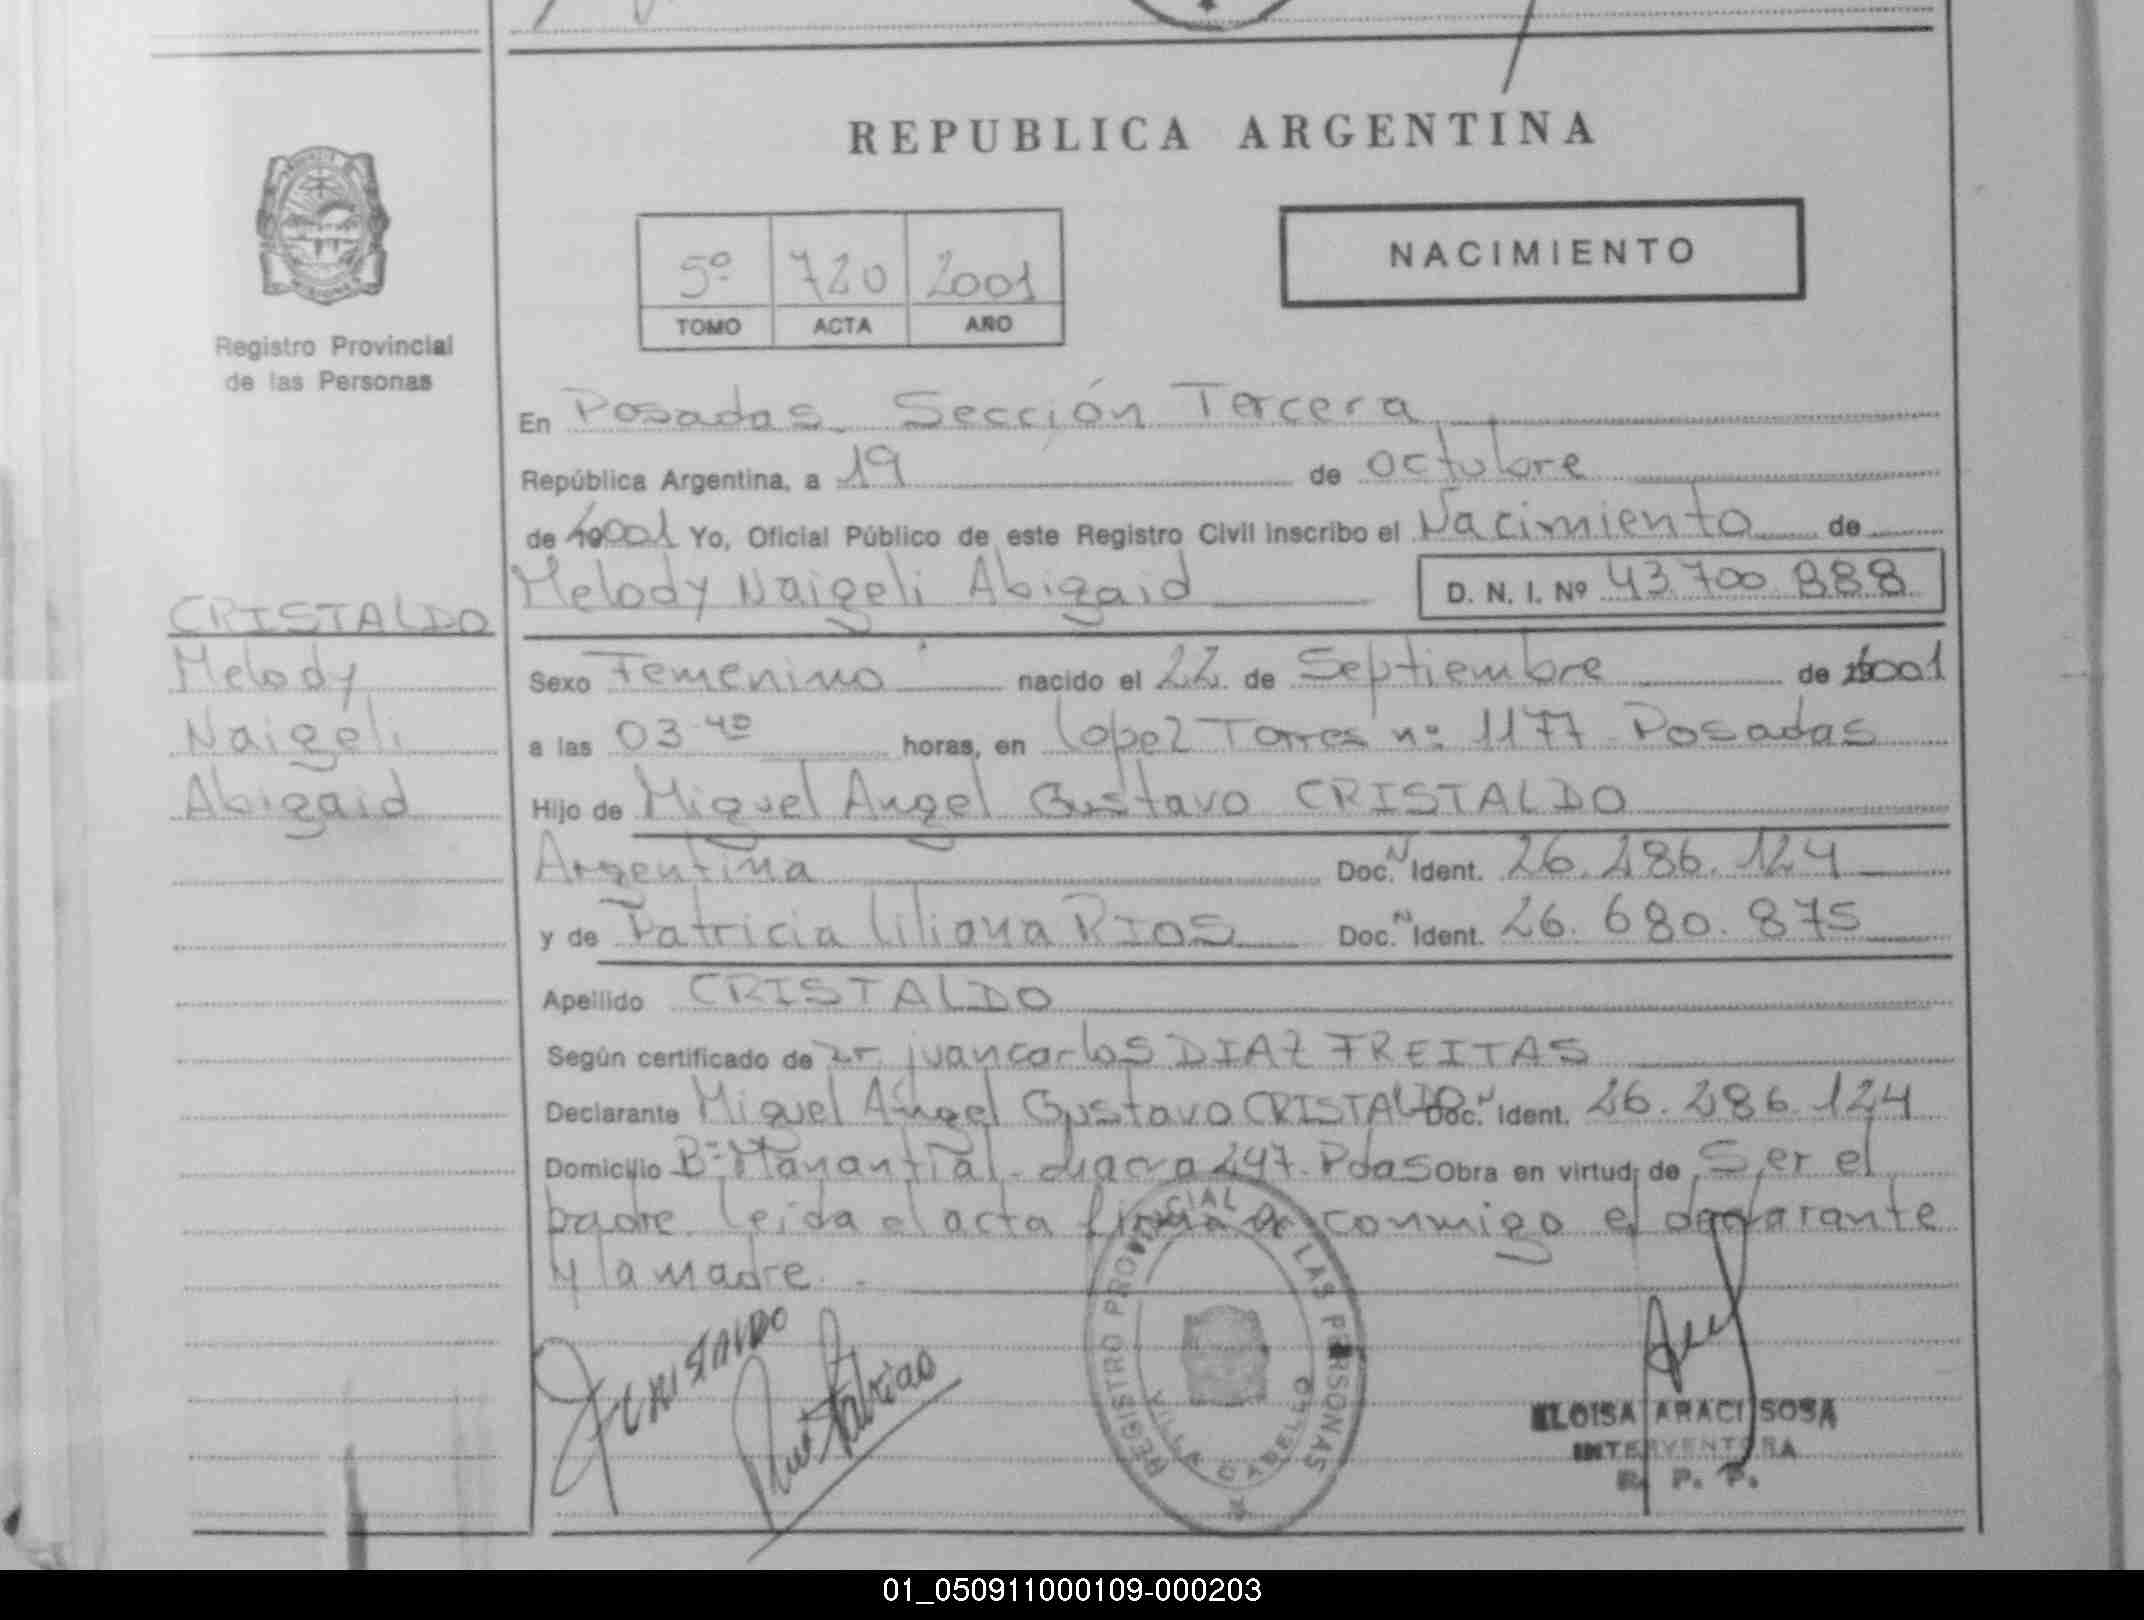 REPUBLICA ARGENTINA
NACIMIENTO
5º 720 2001
TOMO ACTA AÑO
Registro Provincial
de las Personas
En Posadas Sección Tercera
República Argentina, a 19 de octubre
de 2001 Yo, Oficial Público de este Registro Civil inscribo el Nacimiento de
Melody Naigeli Abigaid D. N. I. Nº 43.700.888
CRISTALDO
Melody
Naigeli
Abigaid
Sexo Femenino nacido el 22 de Septiembre de 2001
a las 03 40 horas, en Lopez Torres nº 1177 Posadas
Hijo de Miguel Angel Gustavo CRISTALDO
Argentina Doc. N Ident. 26.286.124
y de Patricia Liliana RIOS Doc. N Ident. 26.680.875
Apellido CRISTALDO
Según certificado de Dr. Juan carlos DIAZ FREITAS
Declarante Miguel Angel Gustavo CRISTALDO Doc. N Ident. 26.286.124
Domicilio Bº Manantial chacra 247 Pdas Obra en virtud de Ser el
padre leida el acta firma conmigo el declarante
y la madre.
CRISTALDO
REGISTRO PROVINCIAL DE LAS PERSONAS
VILLA CABELLO
ELOISA ARACI SOSA
INTERVENTORA
R. P. P.
01_050911000109-000203